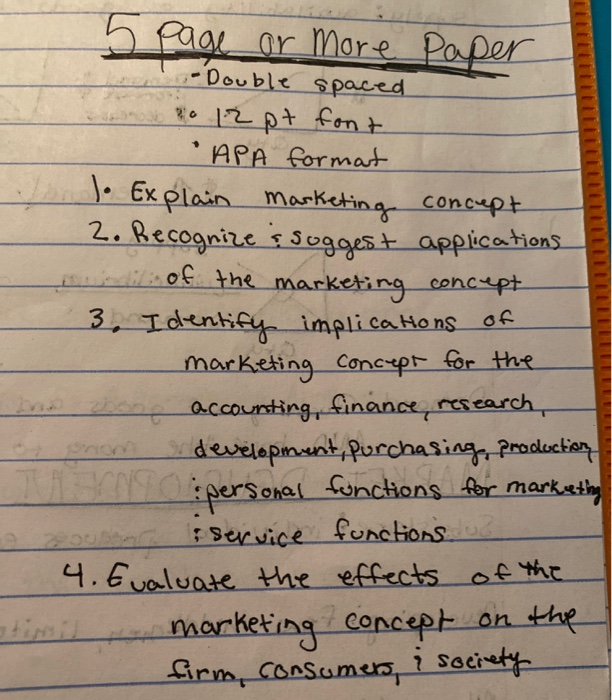 5 Page or More Paper
- Double spaced
• 12 pt font
• APA format
1. Explain marketing concept
2. Recognize & suggest applications
of the marketing concept
3. Identify implications of
marketing concept for the
accounting, finance, research,
development, purchasing, production,
& personal functions for marketing
& service functions.
4. Evaluate the effects of the
marketing concept on the
firm, consumers, & society